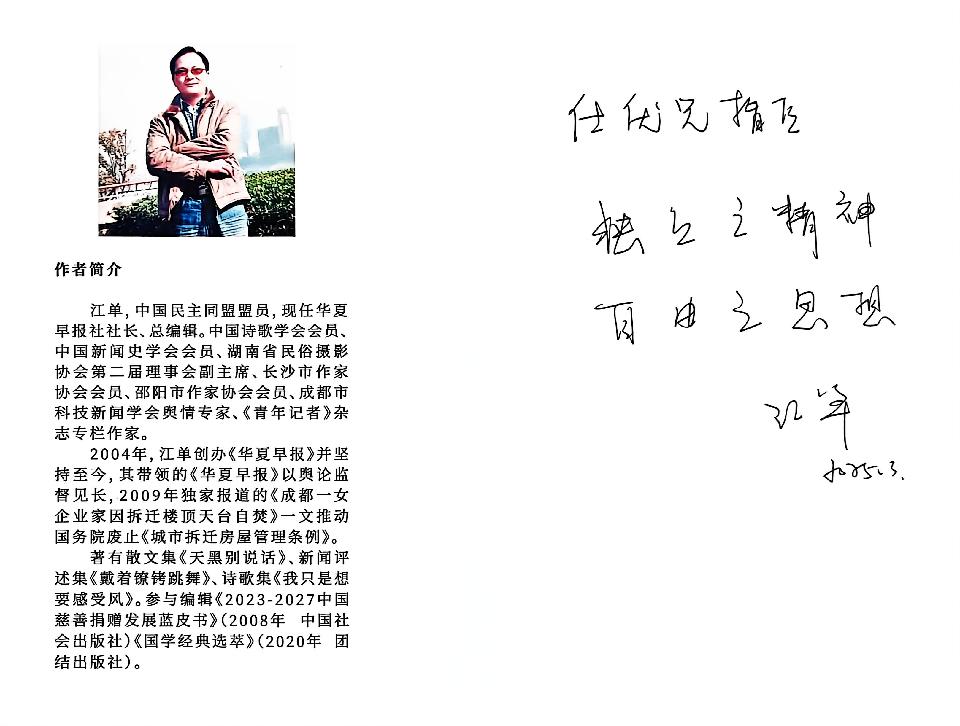 作者简介
江单，中国民主同盟盟员，现任华夏
早报社社长、总编辑。中国诗歌学会会员、
中国新闻史学会会员、湖南省民俗摄影
协会第二届理事会副主席、长沙市作家
协会会员、邵阳市作家协会会员、成都市
科技新闻学会舆情专家、《青年记者》杂
志专栏作家。
2004年，江单创办《华夏早报》并坚
持至今，其带领的《华夏早报》以舆论监
督见长，2009年独家报道的《成都一女
企业家因拆迁楼顶天台自焚》一文推动
国务院废止《城市拆迁房屋管理条例》。
著有散文集《天黑别说话》、新闻评
述集《戴着镣铐跳舞》、诗歌集《我只是想
要感受风》。参与编辑《2023-2027中国
慈善捐赠发展蓝皮书》（2008年 中国社
会出版社）《国学经典选萃》（2020年 团
结出版社）。
仕优兄指正
独立之精神
自由之思想
江单